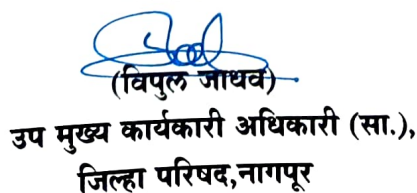 (विपुल जाधव)
उप मुख्य कार्यकारी अधिकारी (सा.),
जिल्हा परिषद,नागपूर